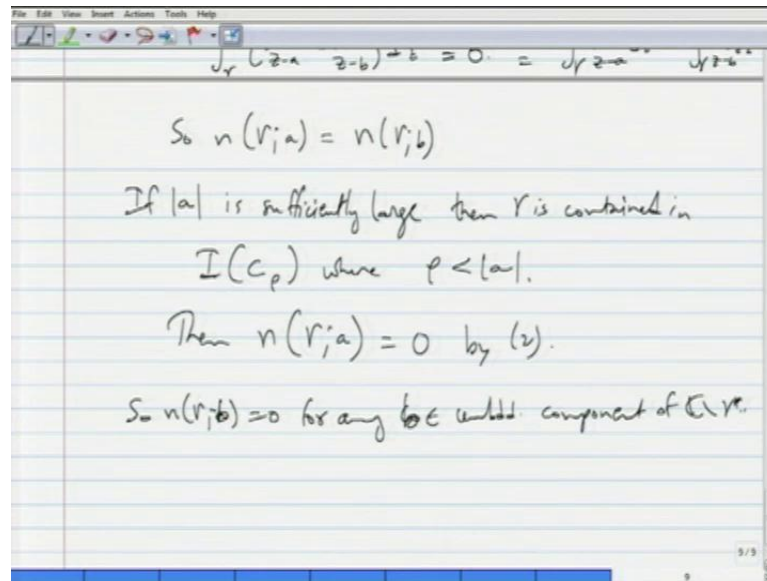 File Edit View Insert Actions Tools Help
∫_γ (1/(z-a) - 1/(z-b)) dz = 0. = ∫_γ 1/(z-a) dz - ∫_γ 1/(z-b) dz
So n(γ;a) = n(γ;b)
If |a| is sufficiently large then γ is contained in
I(C_ρ) where ρ < |a|.
Then n(γ;a) = 0 by (2).
So n(γ;b) = 0 for any b ∈ unbdd. component of ℂ\γ.
9/9
9